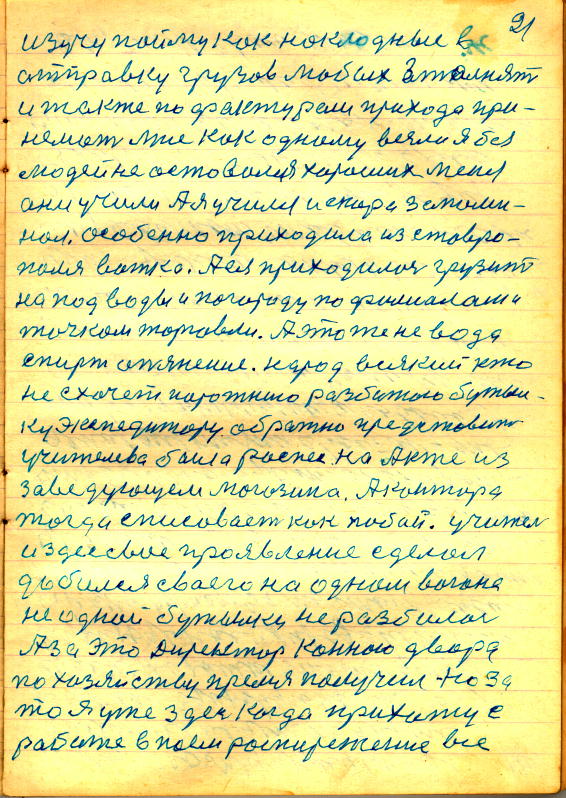 91
изучу пойму как накладные в
отправку грузов любых заполнят
и также по фактурам прихода при-
немат мне как одному взяли Я без
людей не оставался хороших меня
они учили А я учился и скора запоми-
нал. особенно приходила из ставро-
поля вотка. Яея приходилося грузит
на под воды и погороду по филиалам и
точком торговли. А это же не вода
спирт опянение. народ всякий кто
не схочет порожнию разбитаю бутыл-
ку Экспедитору обратно представит
учителева была роспес на Акте из
заведующем магозина. А кантора
тогда списовает как побай. учител
издесвое проявление сделал
добился сваего на одном вагона
не одной бутылку не разбилос
А за Это директор конною двора
по хозяйству премя получил Но за
то Я уже здес когда прихожу с
работе в поем роспирежение все